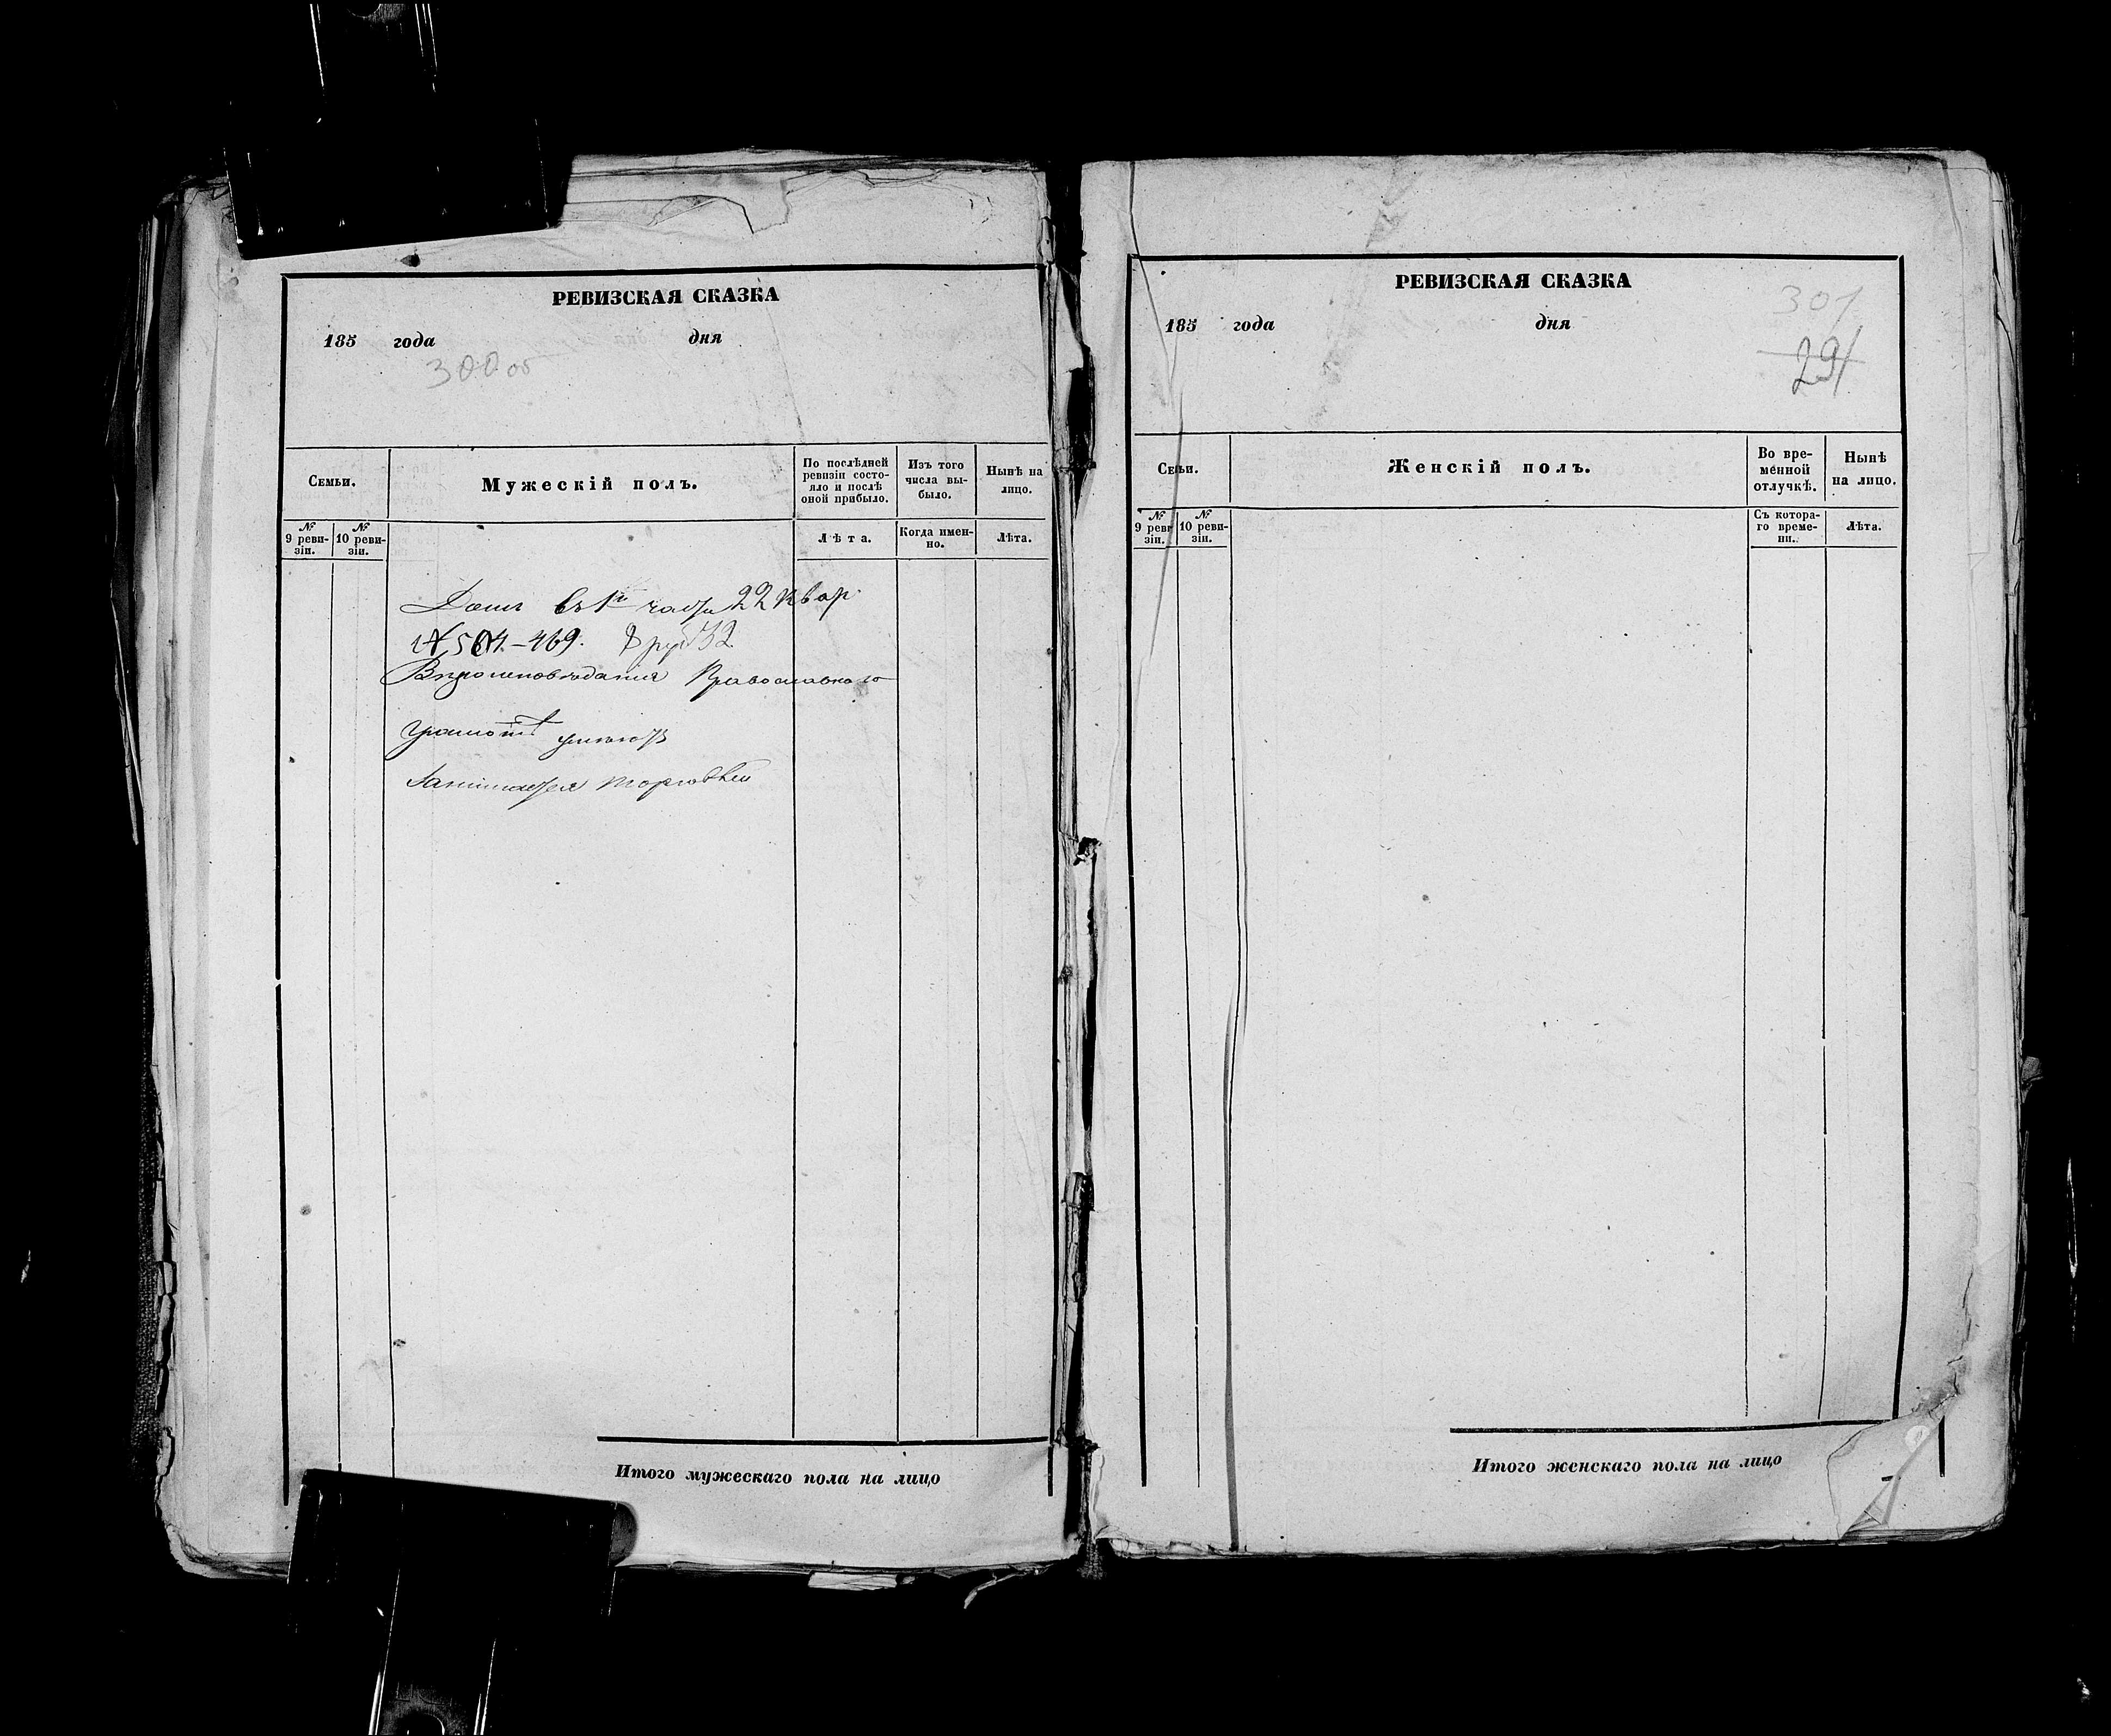 РЕВИЗСКАЯ СКАЗКА
185 года дня
300 об
Семьи.
Мужескій полъ.
По послѣдней ревизіи состо-
яло и послѣ оной прибыло.
Изъ того числа вы-
было.
Нынѣ на лицо.
№ 9 реви-
зіи.
№ 10 реви-
зіи.
Лѣта.
Когда имен-
но.
Лѣта.
Домъ въ 1й части 22 квар
№ 504-469.
Вѣроисповѣданія Православнаго
Грамотѣ умѣютъ
Занимается торговлей
Итого мужескаго пола на лицо
РЕВИЗСКАЯ СКАЗКА
301
185 года дня
291
Семьи.
Женскій полъ.
Во вре-
менной
отлучкѣ.
Нынѣ
на лицо.
№ 9 реви
зіи.
№ 10 реви-
зіи.
Съ котора-
го време-
ни.
Лѣта.
Итого женскаго пола на лицо